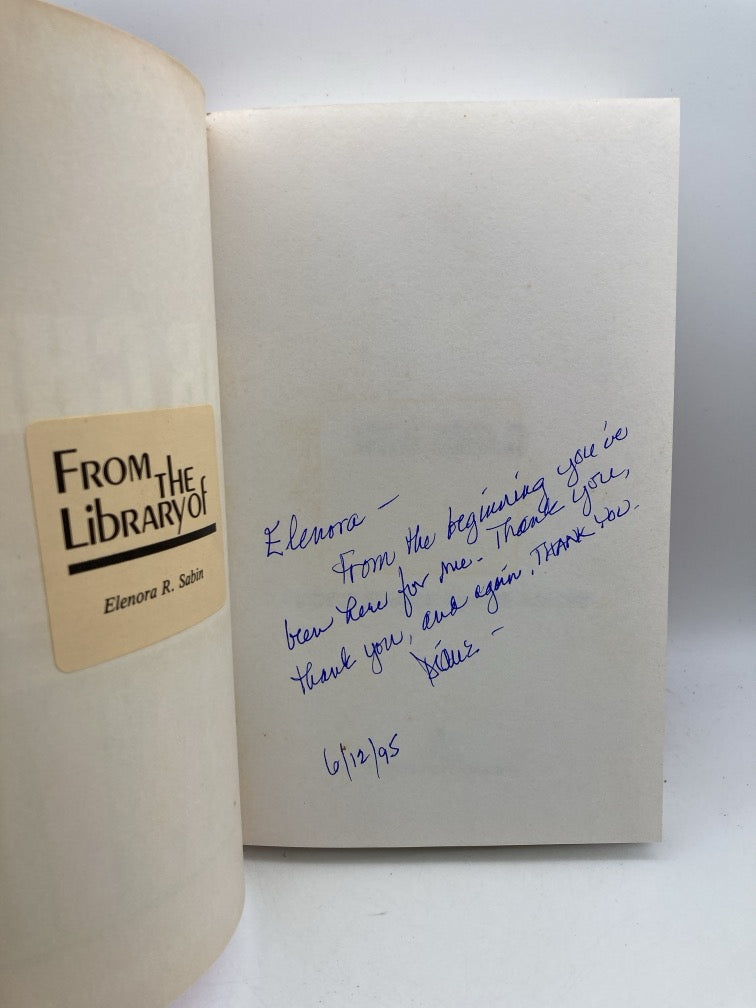 FROM THE
LIBRARY of
Elenora R. Sabin
Elenora –
From the beginning you've
been here for me. Thank you,
thank you, and again, THANK YOU.
Diane –
6/12/95